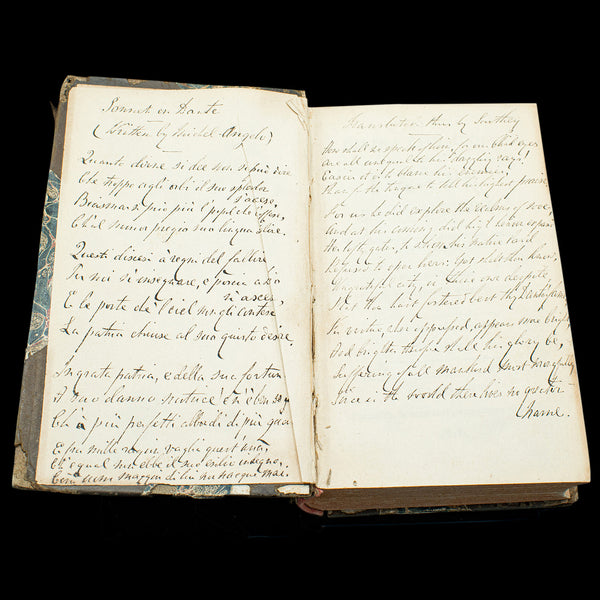 Sonnet on Dante
(Written by Michel-Angelo)
Quanto dirne si dee non si può dire
Che troppo agli orbi il suo splendor
s'accese,
Biasmar si può più 'l popol che l'offese,
Ch'al minor pregio sua lingua salire.
Questi discese a' regni del fallire
Per noi insegnare, e poscia a Dio
n'ascese,
E le porte che 'l ciel non gli contese
La patria chiuse al suo giusto desire.
Ingrata patria, e della sua fortuna
A suo danno nutrice
Ch'a più perfetti abondi di più guai
E fra mille ragion vaglia quest'una,
Ch'egual non ebbe il suo exilio indegno,
Translation thus by Southey
How shall we speak of him, for our blind eyes
Are all unequal to his dazzling rays?
Easier it is to blame his enemies,
Than for the tongue to tell his highest praise.
For us he did explore the realms of woe;
And at his coming did high heaven expand
Her lofty gates, to whom his native land
Refused to open hers. Yet shalt thou know,
Ungrateful city, in thine own despite,
That thou hast fostered best thy Dante's fame;
For virtue, when oppressed, appears more bright,
And brighter therefore shall his glory be,
Suffering of all mankind most wrongfully
Since in the world there lives no greater
name.